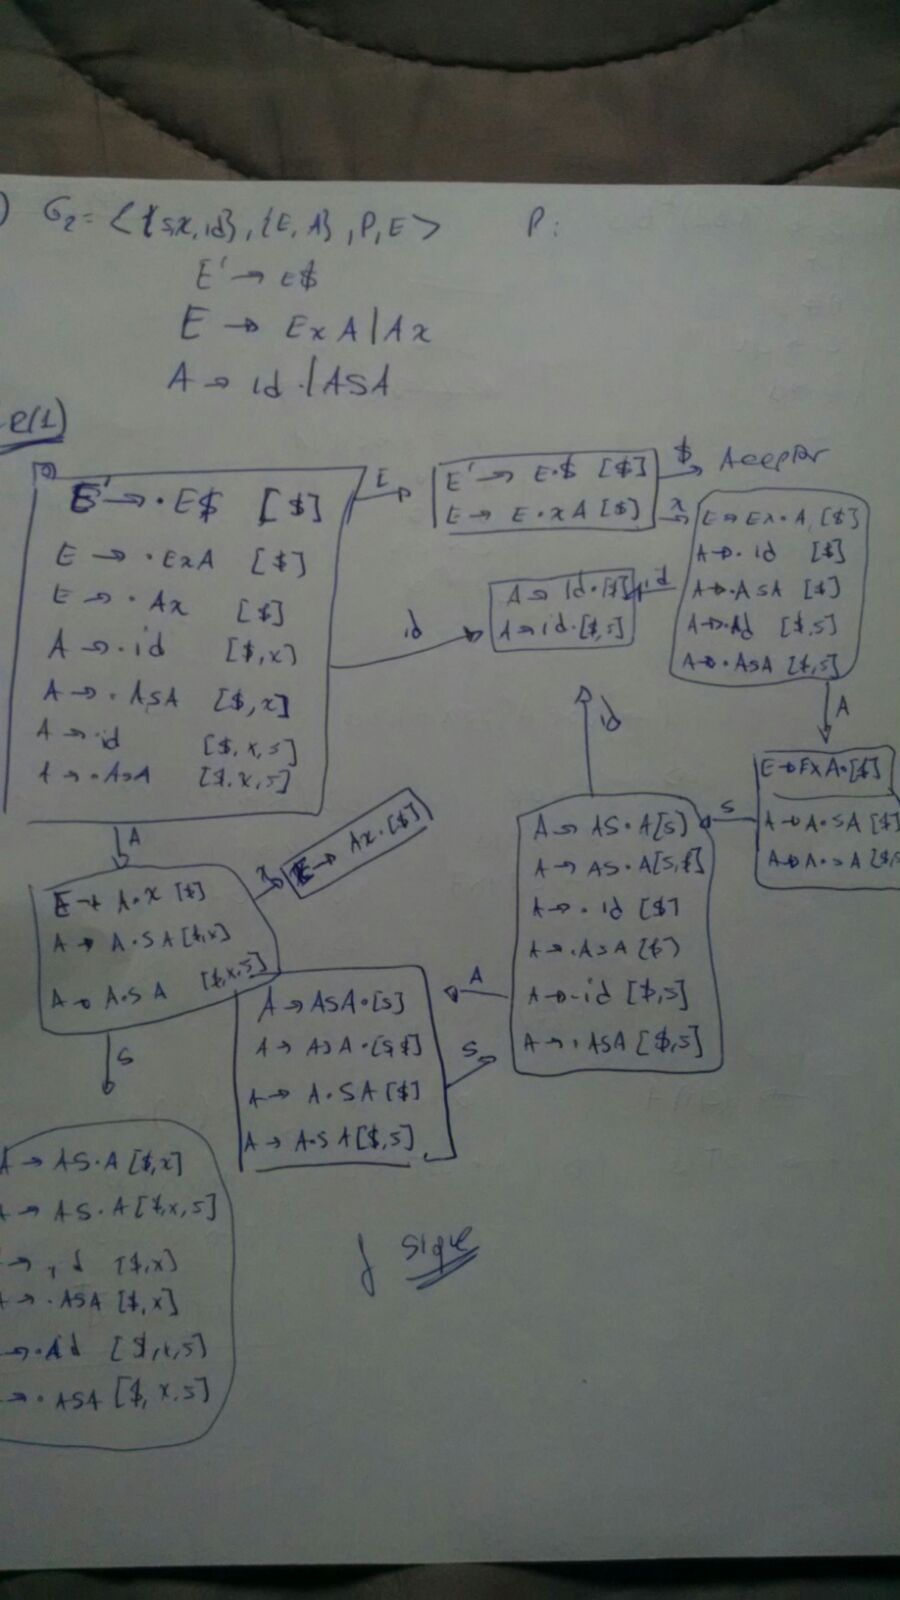 ) G₂= <{s,x,id},{E,A},P,E> P:
E' → E$
E → ExA|Ax
A → id|ASA
R(1)
E' → ·E$ [$]
E → ·ExA [$]
E → ·Ax [$]
A → ·id [$,x]
A → ·ASA [$,x]
A → ·id [$,x,s]
A → ·ASA [$,x,s]
E
E' → E·$ [$]
E → E·xA [$]
$
Aceptar
x
E → Ex·A [$]
A → ·id [$]
A → ·ASA [$]
A → ·id [$,s]
A → ·ASA [$,s]
id
A → id·[$]
A → id·[$,s]
id
A
E → ExA·[$]
A → A·SA [$]
A → A·SA [$,s
S
A → AS·A[s]
A → AS·A[s,$]
A → ·id [$]
A → ·ASA [$]
A → ·id [$,s]
A → ·ASA [$,s]
id
A
E → A·x [$]
A → A·SA [$,x]
A → A·SA [$,x,s]
x
E → Ax·[$]
A
A → ASA·[s]
A → ASA·[s,$]
A → A·SA [$]
A → A·SA [$,s]
S
S
A → AS·A [$,x]
A → AS·A [$,x,s]
→ ·id [$,x]
A → ·ASA [$,x]
→ ·id [$,x,s]
→ ·ASA [$,x,s]
sigue